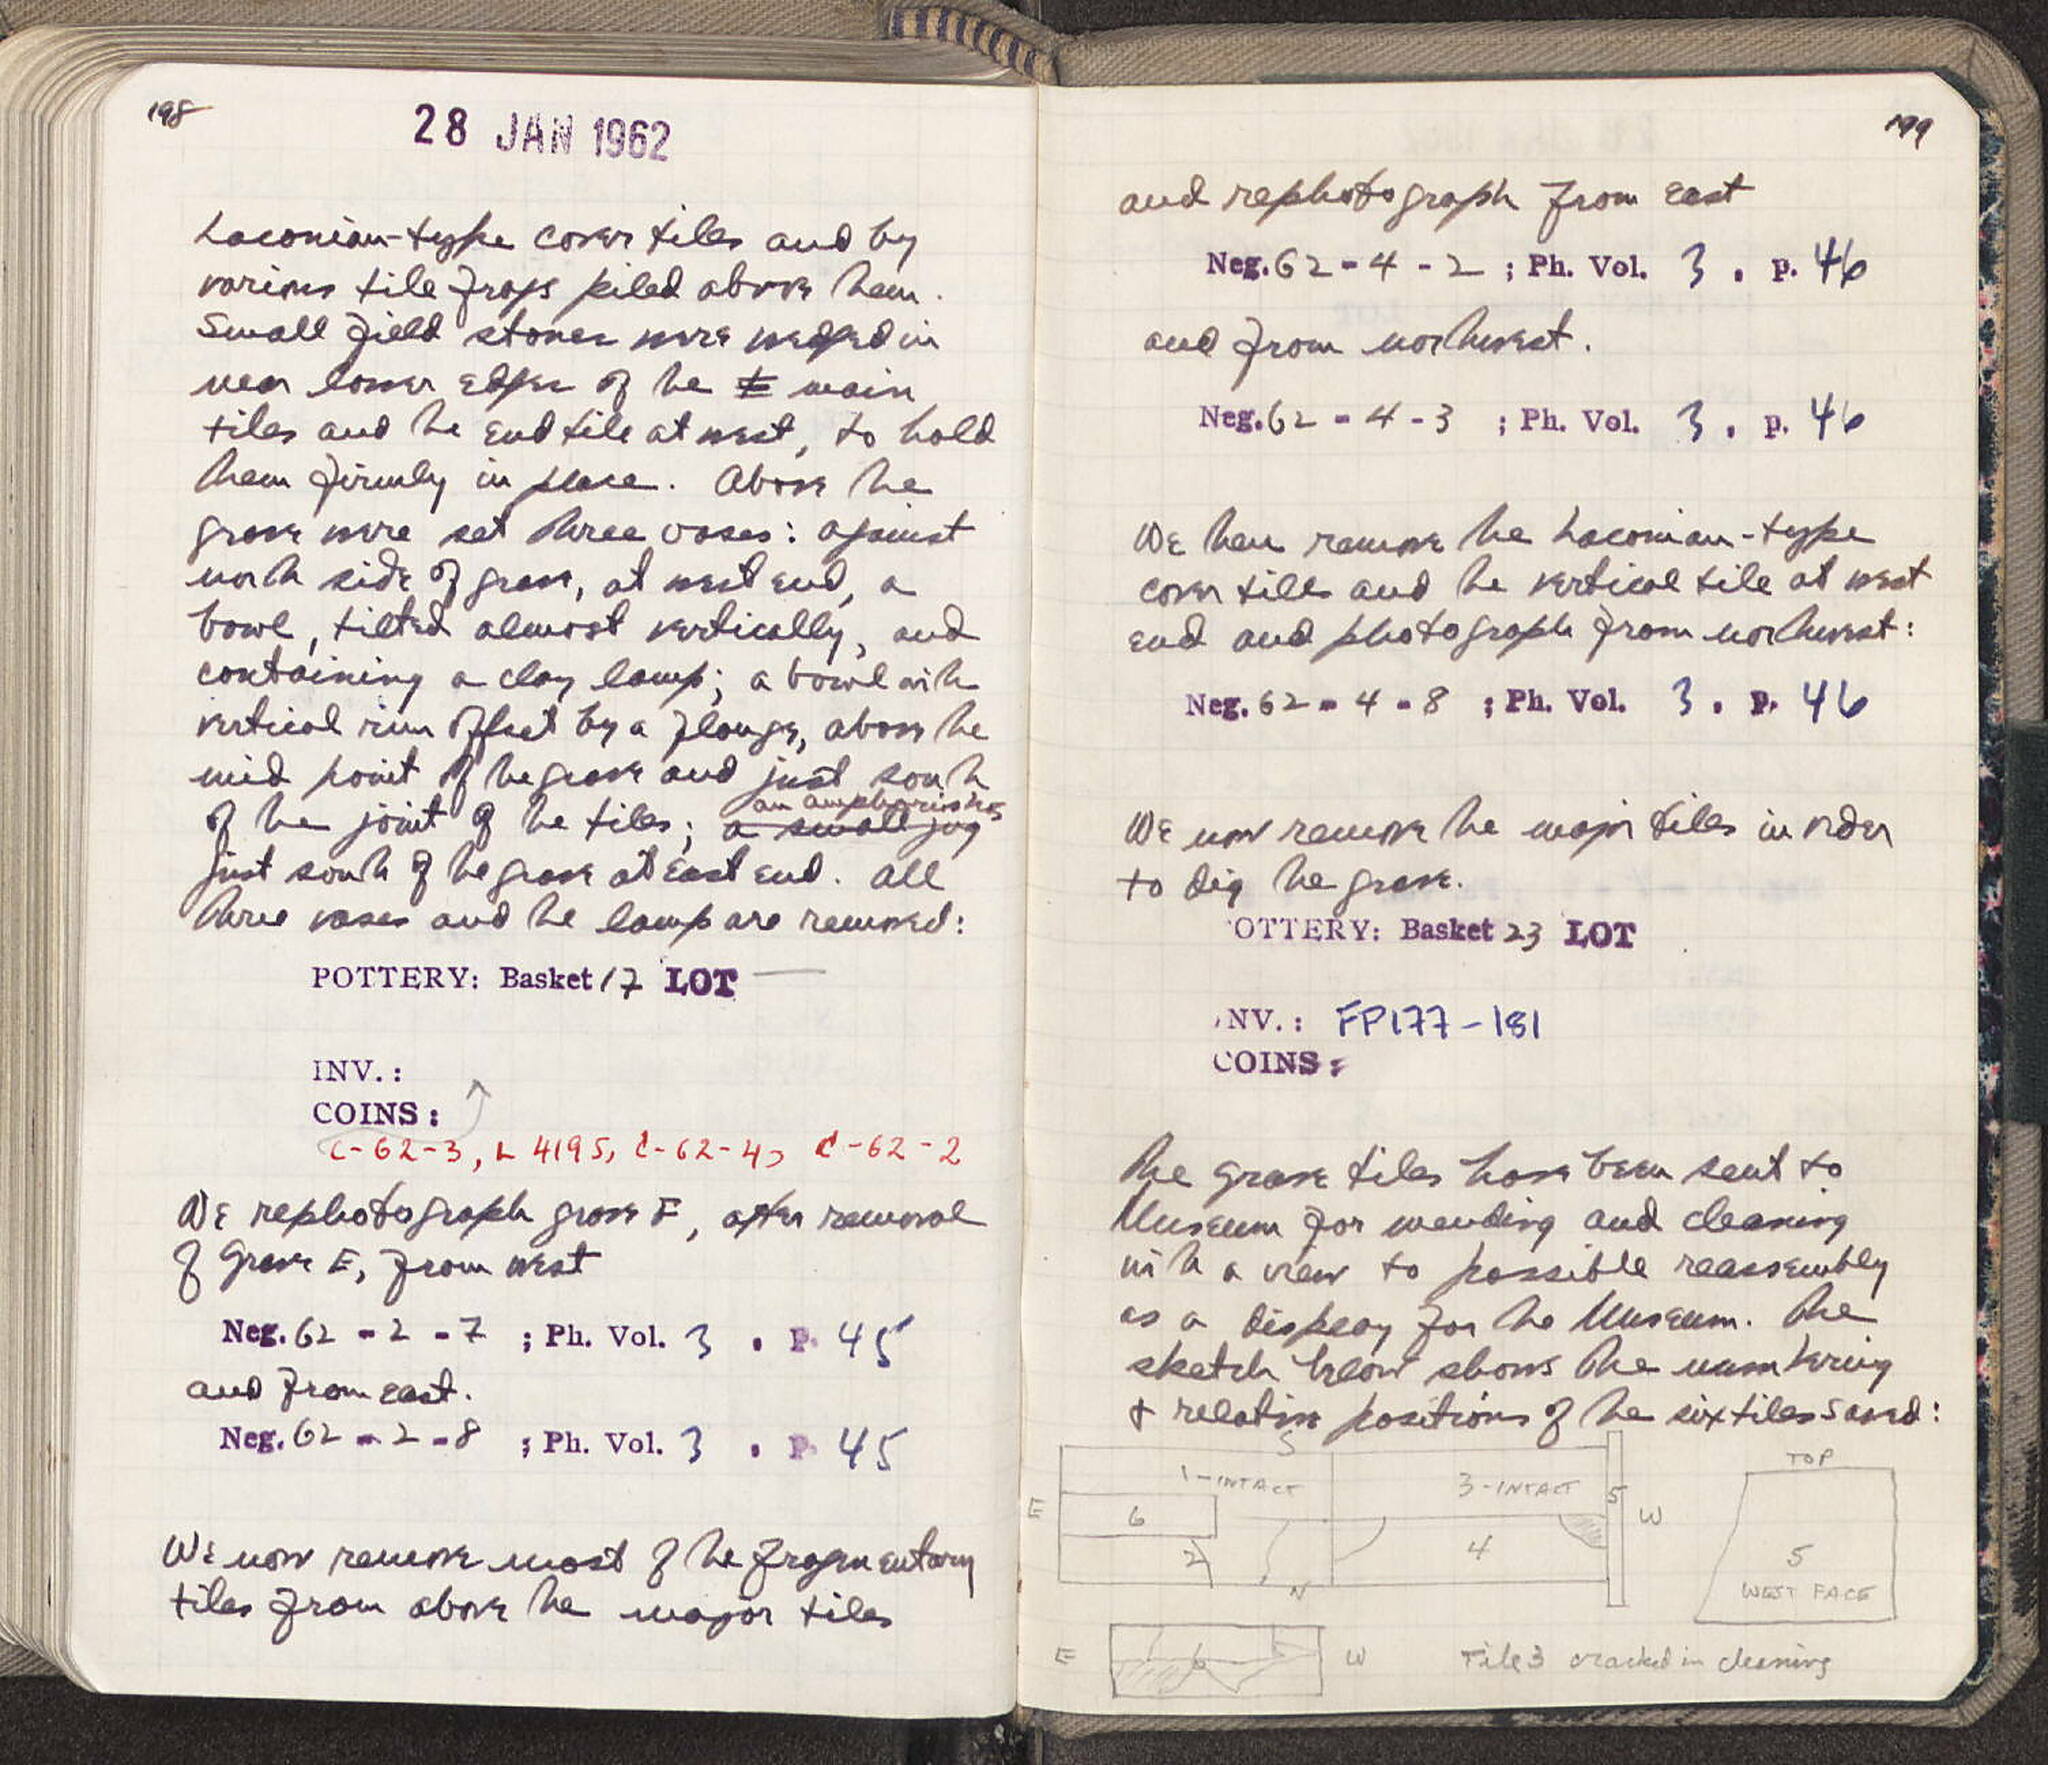 198
28 JAN 1962
Laconian-type cover tiles and by
various tile frags piled above them.
Small field stones were wedged in
near lower edges of the t main
tiles and the end tile at west, to hold
them firmly in place. Above the
grave were set three vases: against
north side of grave, at west end, a
bowl, tilted almost vertically, and
containing a clay lamp; a bowl with
vertical rim offset by a flange, above the
mid point of the grave and just south
of the joint of the tiles; a small jug an amphoriskos
just south of the grave at east end. All
three vases and the lamp are removed:
POTTERY: Basket 17 LOT —
INV.:
COINS:
C-62-3, L 4195, C-62-4, C-62-2
We rephotograph grave F, after removal
of Grave E, from west
Neg. 62 - 2 - 7 ; Ph. Vol. 3 . p. 45
and from east.
Neg. 62 - 2 - 8 ; Ph. Vol. 3 . p. 45
We now remove most of the fragmentary
tiles from above the major tiles
199
and rephotograph from east
Neg. 62 - 4 - 2 ; Ph. Vol. 3 . p. 46
and from northwest.
Neg. 62 - 4 - 3 ; Ph. Vol. 3 . p. 46
We then remove the Laconian-type
cover tiles and the vertical tile at west
end and photograph from northwest:
Neg. 62 - 4 - 8 ; Ph. Vol. 3 . p. 46
We now remove the major tiles in order
to dig the grave.
OTTERY: Basket 23 LOT
NV.: FP177-181
COINS:
The grave tiles have been sent to
Museum for mending and cleaning
with a view to possible reassembly
as a display for the Museum. The
sketch below shows the numbering
& relative positions of the six tiles saved:
S
TOP
1-INTACT 3-INTACT 5
E 6 W
2 4 5
N WEST FACE
E 6 W Tile 3 cracked in cleaning